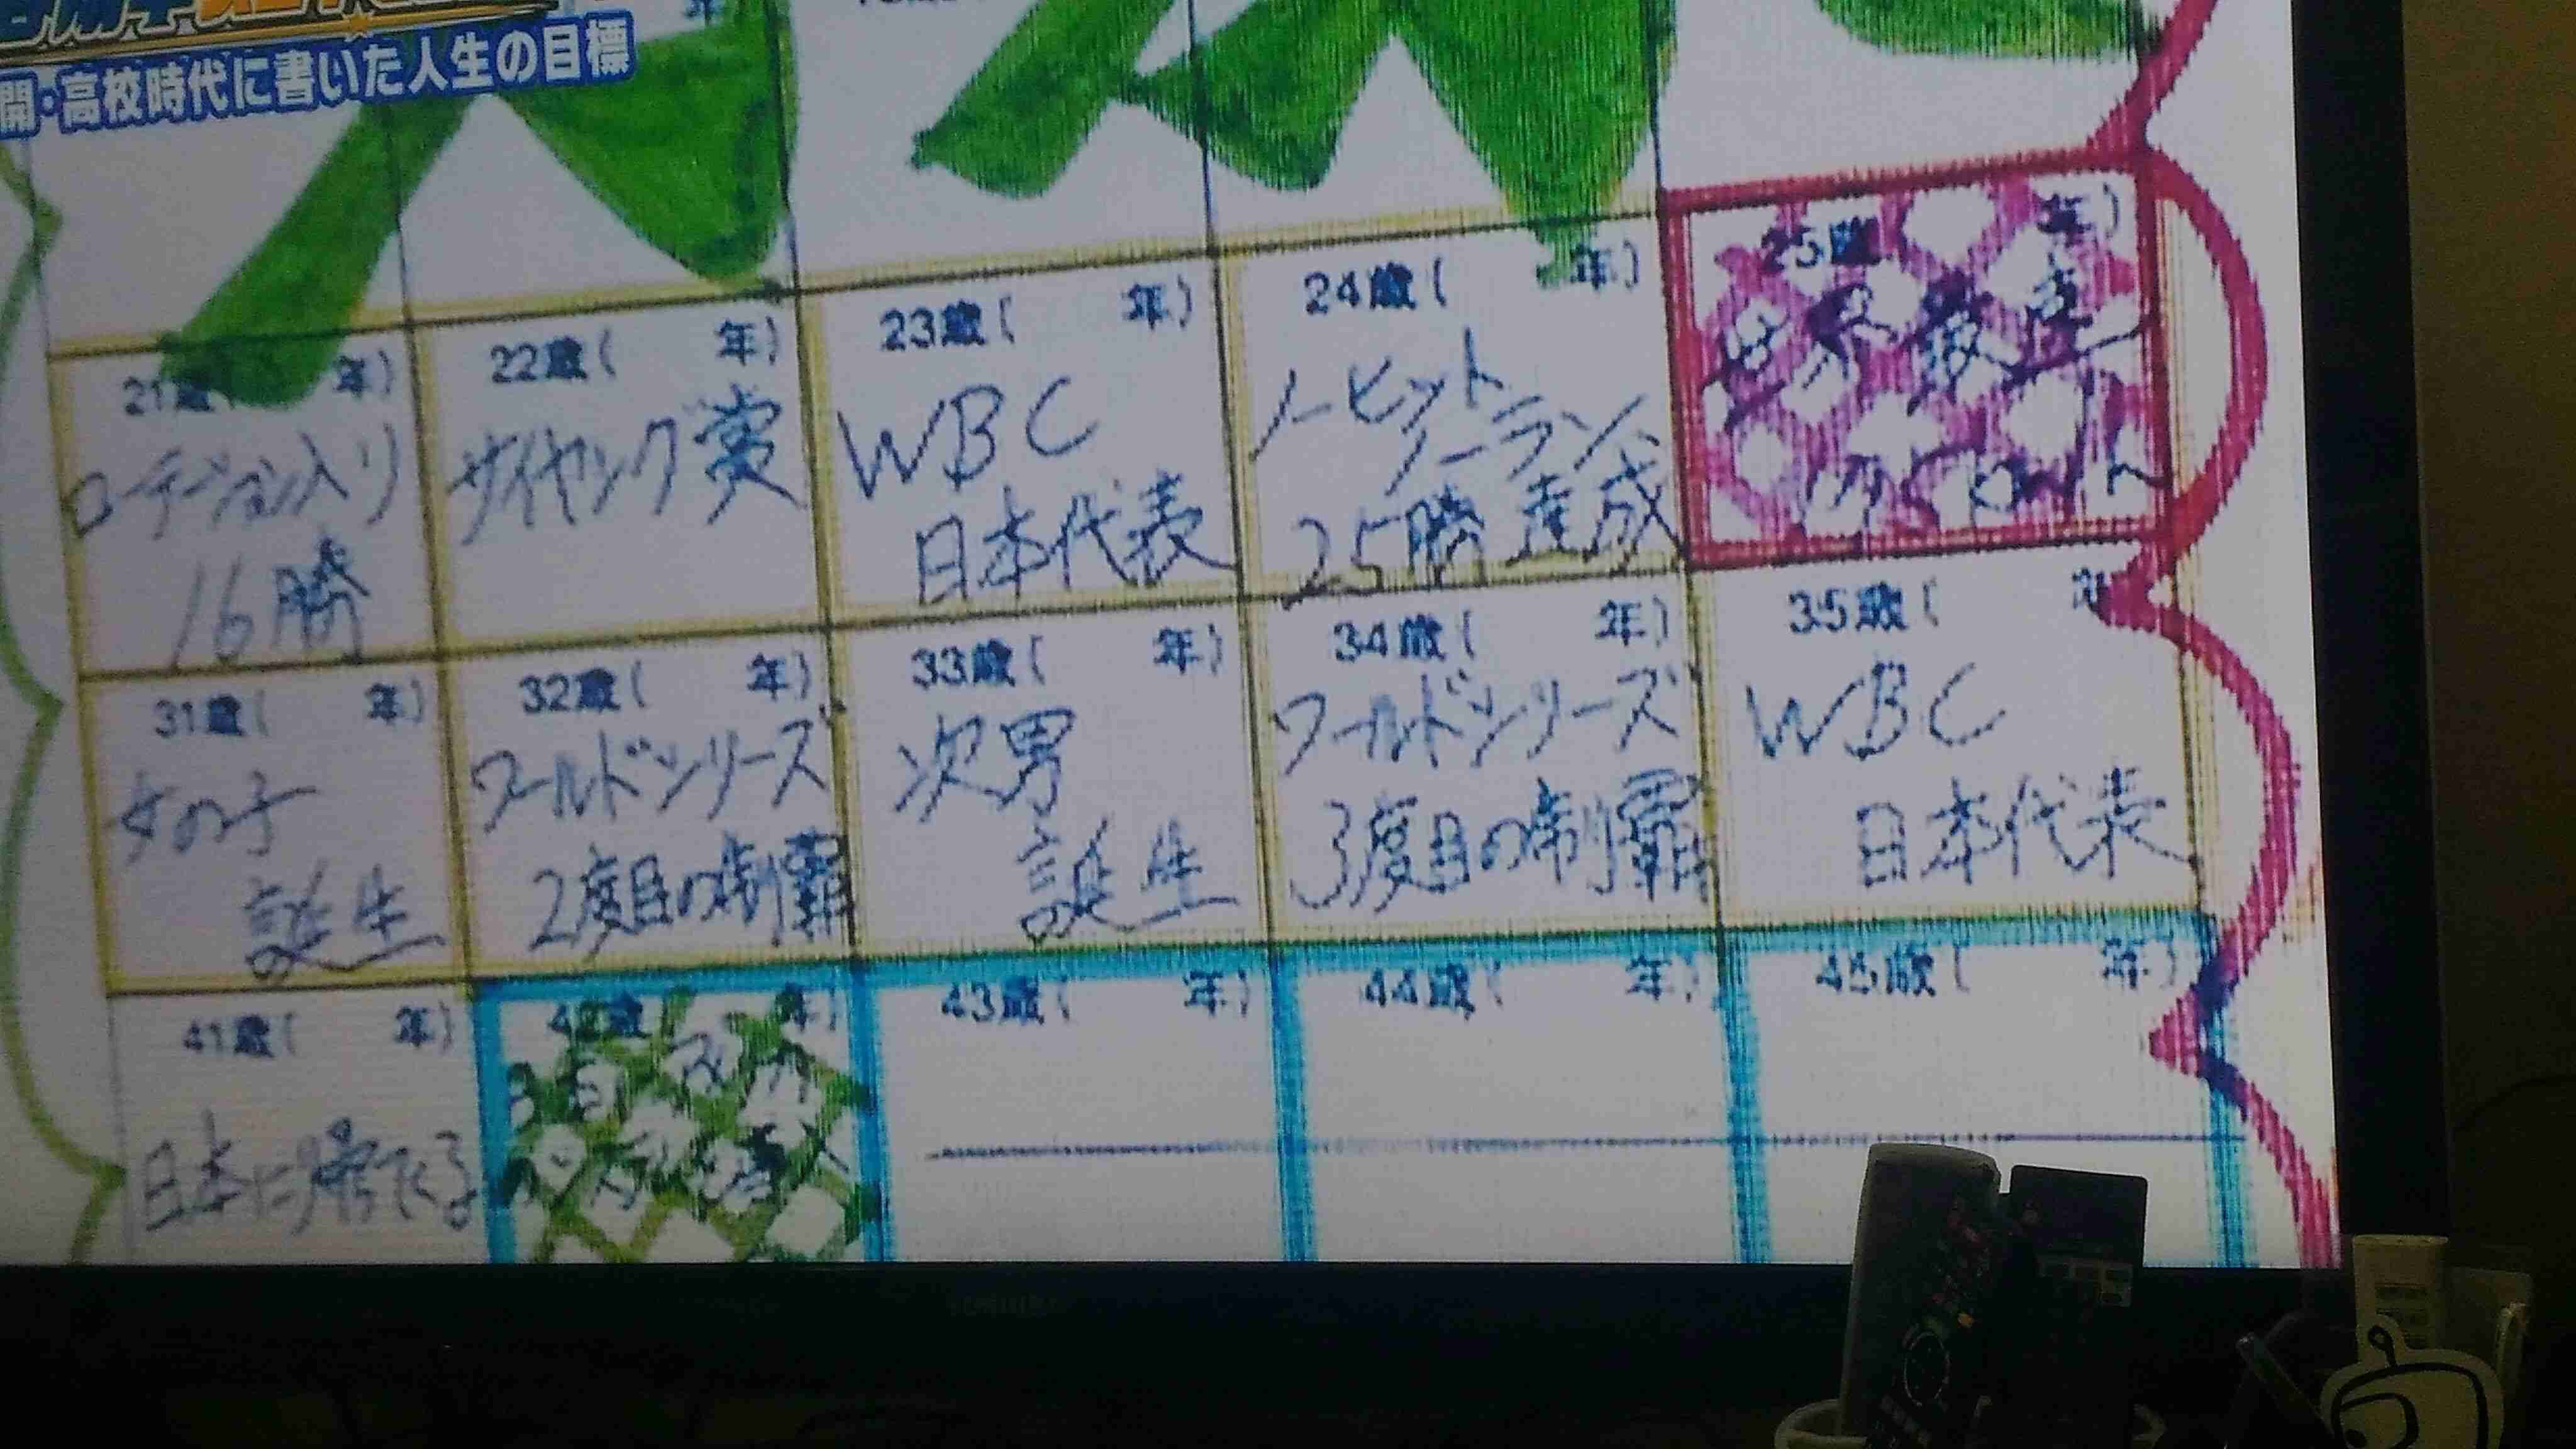 開・高校時代に書いた人生の目標
21歳( 年)
ローテーション入り
16勝
22歳( 年)
サイヤング賞
23歳( 年)
WBC
日本代表
24歳( 年)
ノーヒット
ノーラン
25勝達成
25歳 年)
31歳( 年)
女の子
誕生
32歳( 年)
ワールドシリーズ
2度目の制覇
33歳( 年)
次男
誕生
34歳( 年)
ワールドシリーズ
3度目の制覇
35歳(
WBC
日本代表
41歳( 年)
日本に帰てくる
42歳( 年)
43歳( 年)
44歳( 年)
45歳( 年)